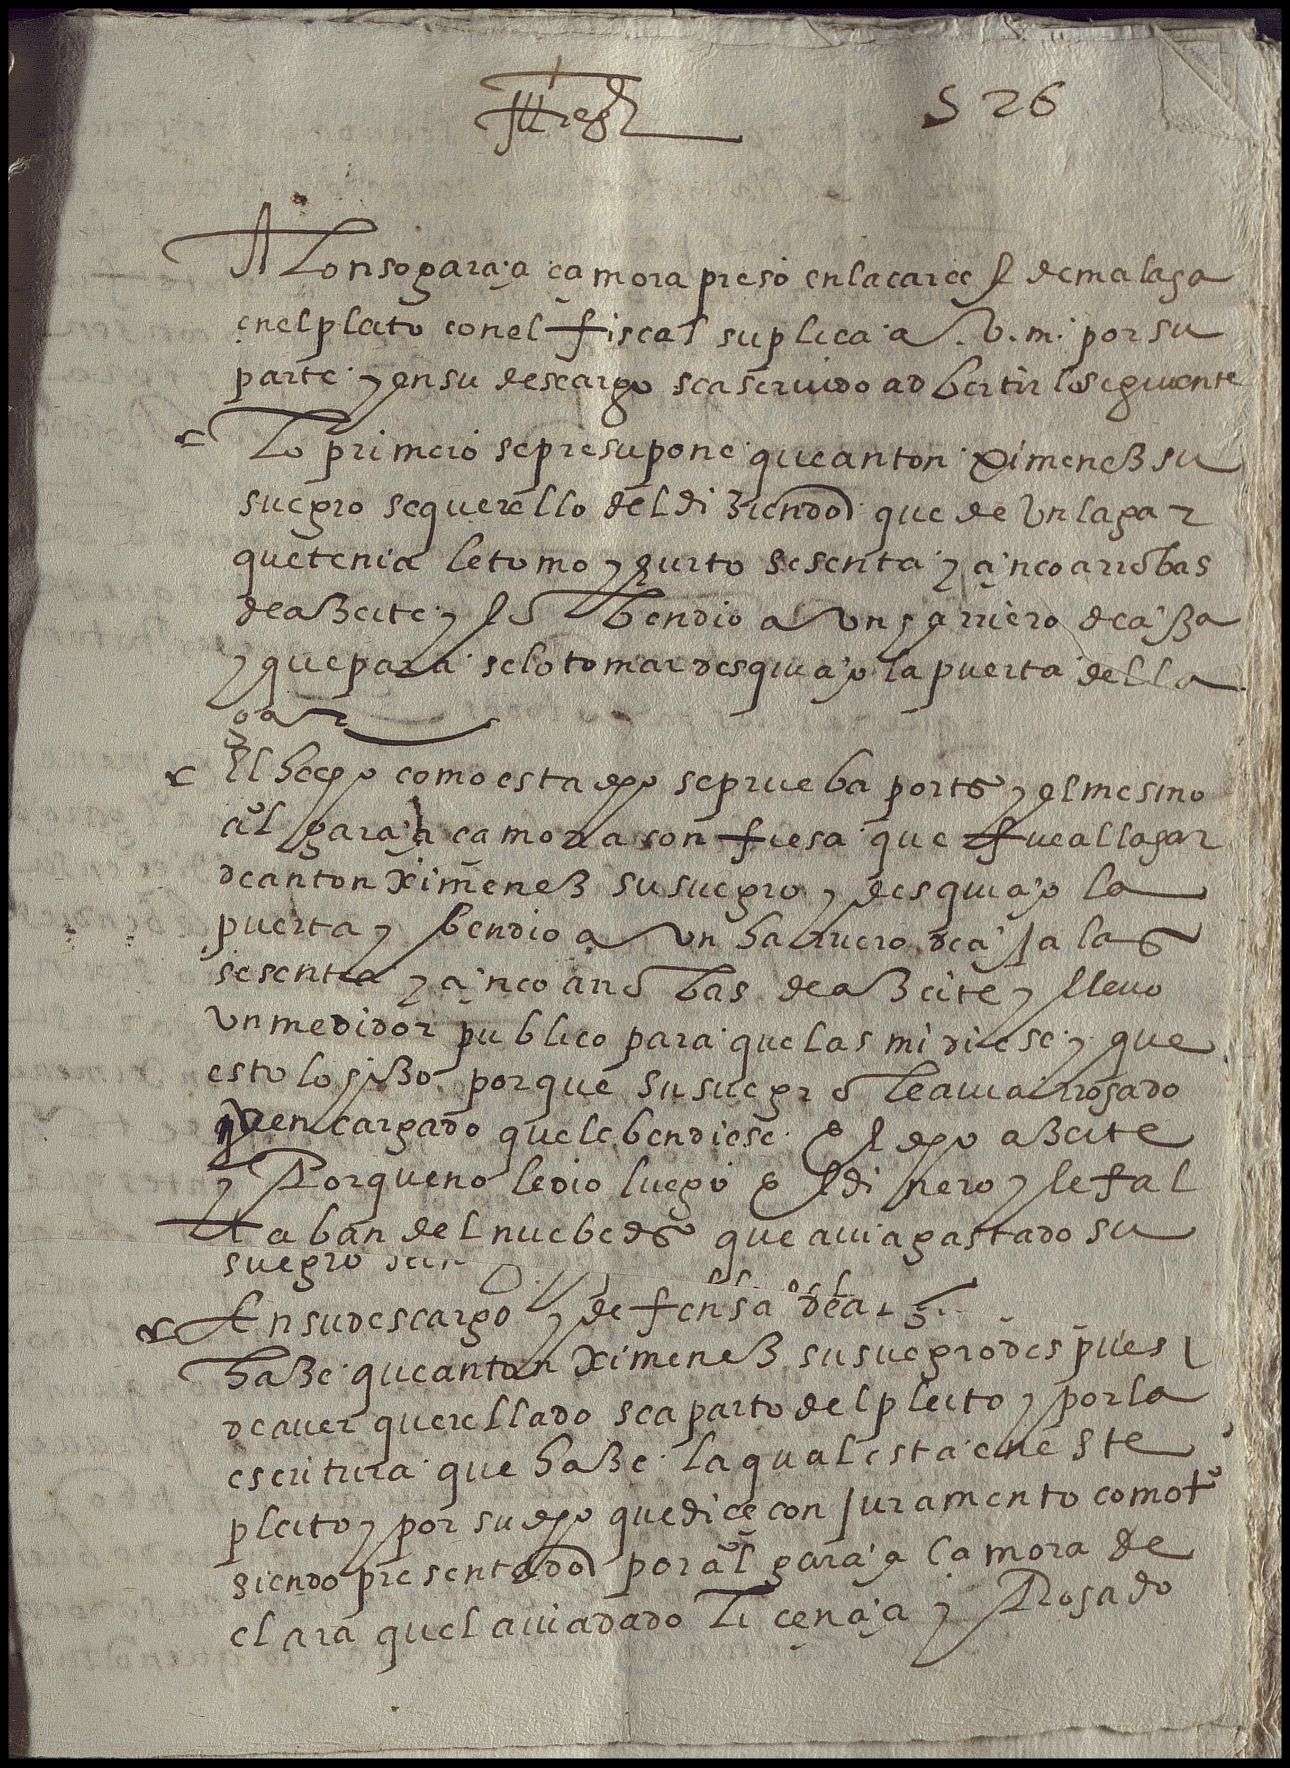 526
Alonso garçia çamora preso en la carcel de malaga
en el pleito con el fiscal suplica a v. m. por su
parte y en su descargo sea seruido adbertir lo seguiente
Lo primero se presupone que anton ximenez su
suegro se querello del diziendo que de un lagar
que tenia le tomo y hurto sesenta y çinco arrobas
de azeite y lo bendio a un harriero de
y que para selo tomar desquiçio la puerta del la
gar
El hecho como esta dho se prueba por tos y el mesmo
al garçia çamora confiesa que fue al lagar
de anton ximenez su suegro y desquiçio la
puerta y bendio a un harriero de las
sesenta y çinco arrobas de azeite y lleuo
un medidor publico para que las midiese y que
esto lo hizo porque su suegro le auia rrogado
y encargado que le bendiese el dho azeite
y Porque no le dio luego el dinero y le fal
taban del nuebe ds que auia gastado su
suegro
En su descargo y defensa
haze que anton ximenez su suegro despues
de auer querellado se aparto del pleito y por la
escritura que haze la qual esta en este
pleito y por su dho que dice con juramento como to
siendo presentado por al garçia çamora de
clara quel auia dado liçençia y Rogado